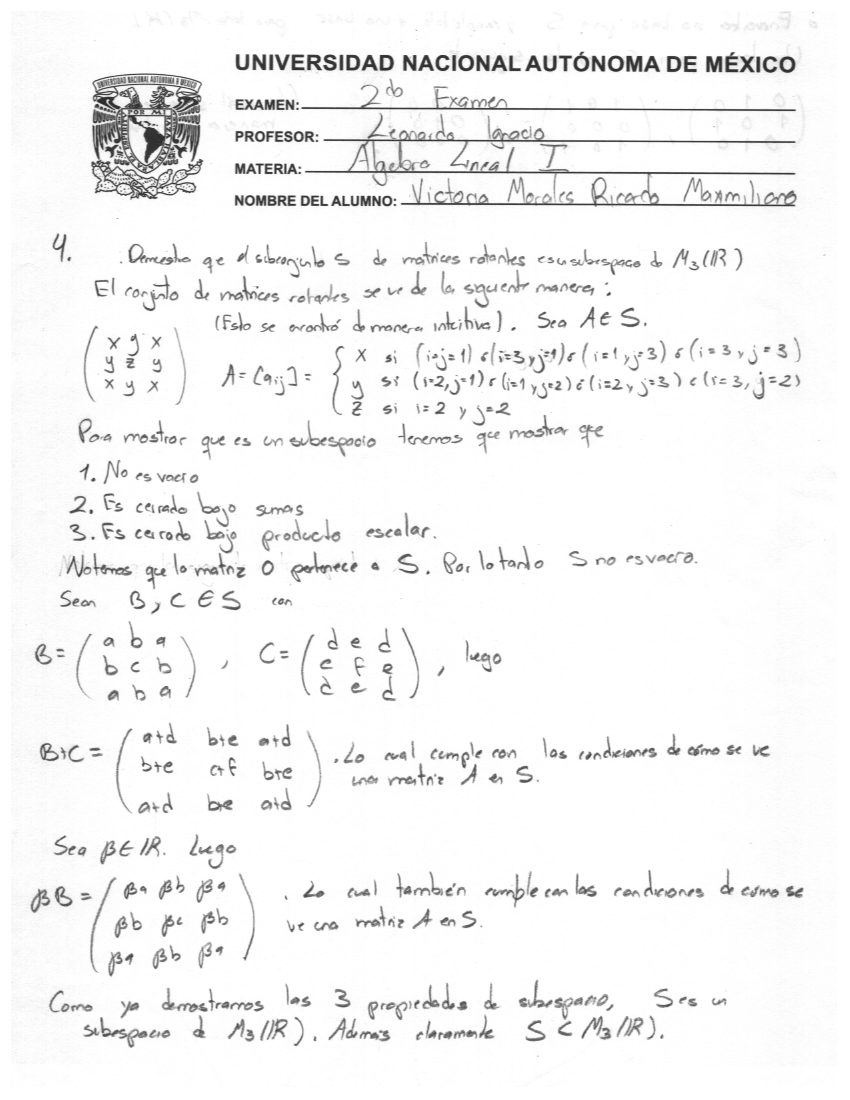 UNIVERSIDAD NACIONAL AUTÓNOMA DE MÉXICO
EXAMEN: 2do Examen
PROFESOR: Leonardo Ignacio
MATERIA: Algebra Lineal I
NOMBRE DEL ALUMNO: Victoria Morales Ricardo Maxmiliano
4. Demuestra que el subconjunto S de matrices rotantes es un subespacio de M₃(IR)
El conjunto de matrices rotantes se ve de la siguiente manera:
(Esto se encontró de manera intuitiva). Sea A ∈ S.
( x y x
y z y
x y x )
A = [aij] = { x si (i=j=1) ó (i=3 y j=1) ó (i=1 y j=3) ó (i=3 y j=3)
y si (i=2, j=1) ó (i=1 y j=2) ó (i=2 y j=3) ó (i=3, j=2)
z si i=2 y j=2
Para mostrar que es un subespacio tenemos que mostrar que
1. No es vacío
2. Es cerrado bajo sumas
3. Es cerrado bajo producto escalar.
Notemos que la matriz 0 pertenece a S. Por lo tanto S no es vacío.
Sean B, C ∈ S con
B = ( a b a
b c b
a b a ) , C = ( d e d
e f e
d e d ) , luego
B+C = ( a+d b+e a+d
b+e c+f b+e
a+d b+e a+d ) . Lo cual cumple con las condiciones de cómo se ve
una matriz A en S.
Sea β ∈ IR. Luego
βB = ( βa βb βa
βb βc βb
βa βb βa ) . Lo cual también cumple con las condiciones de como se
ve una matriz A en S.
Como ya demostramos las 3 propiedades de subespacio, S es un
subespacio de M₃(IR). Además claramente S ⊂ M₃(IR).